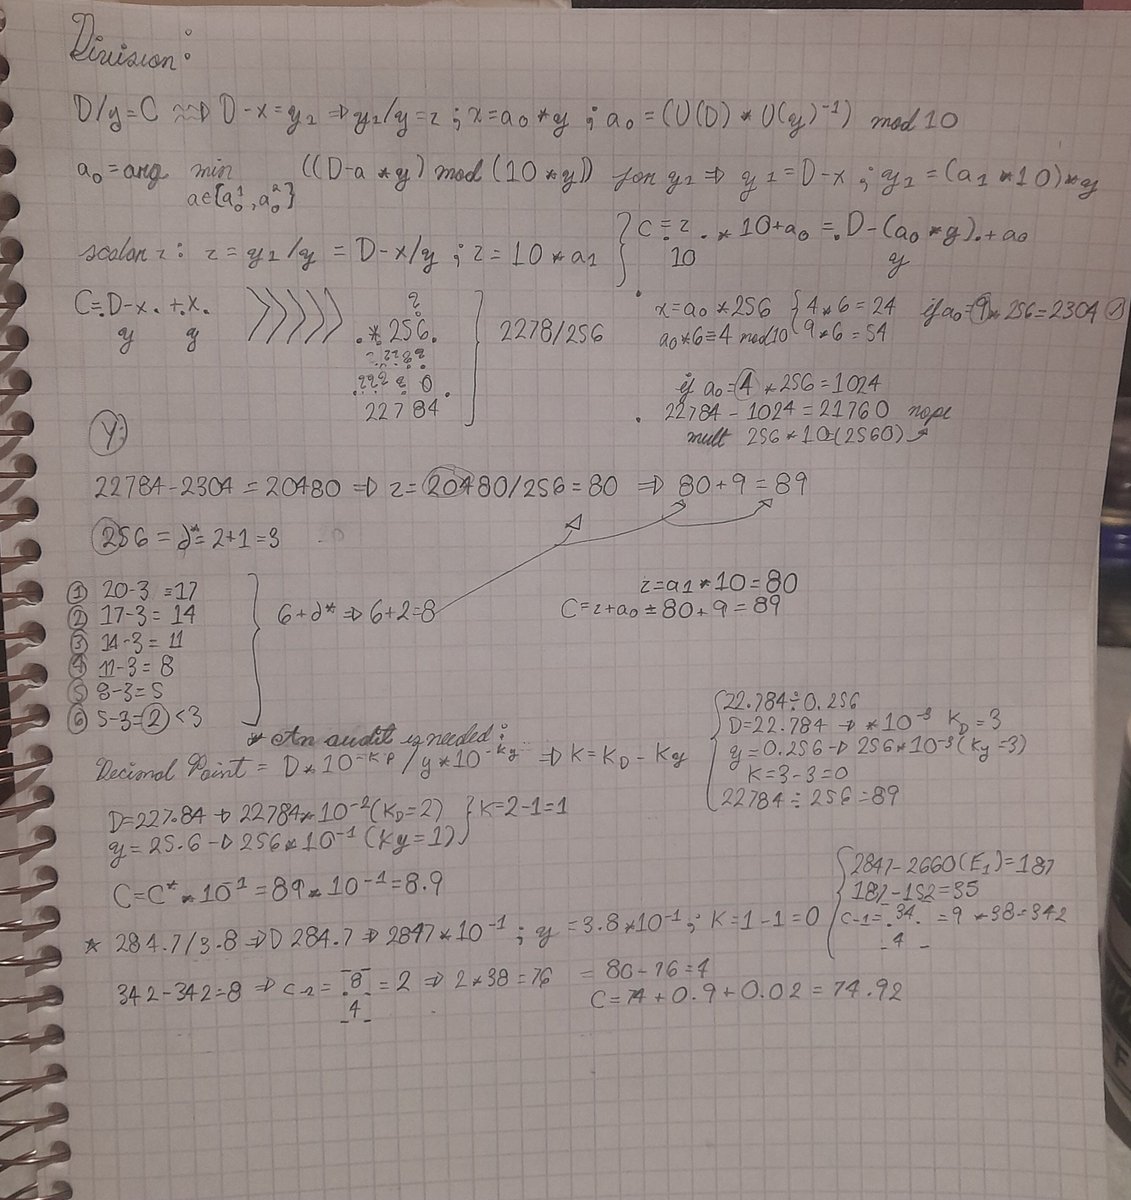 Division:
D/y=C ≈⇒ D-x=y₂ ⇒ y₂/y=z ; x=a₀*y ; a₀=(U(D)*U(y)⁻¹) mod 10
a₀=arg min ((D-a*y) mod (10*y)) for y₂ ⇒ y₂=D-x ; y₂=(a₁*10)*y
a∈{a₀¹,a₀²}
scalar z: z=y₂/y = D-x/y ; z=10*a₁
C=z/10 * 10+a₀ = D-(a₀*y)/y + a₀
C=D-x/y + x/y
*256
0
22784
2278/256
x=a₀*256 { 4*6=24 if a₀=9*256=2304
a₀*6=4 mod10 9*6=54
if a₀=4*256=1024
22784-1024=21760 nope
mult 256*10=(2560)
Y:
22784-2304=20480 ⇒ z=20480/256=80 ⇒ 80+9=89
256=∂*=2+1=3
① 20-3=17
② 17-3=14
③ 14-3=11
④ 11-3=8
⑤ 8-3=5
⑥ 5-3=2<3
6+∂*⇒6+2=8
z=a₁*10=80
C=z+a₀=80+9=89
* An audit is needed:
Decimal Point = D*10^-KD / y*10^-Ky ⇒ K=KD-Ky
22.784÷0.256
D=22.784 → *10⁻³ KD=3
y=0.256→256*10⁻³(Ky=3)
K=3-3=0
22784÷256=89
D=227.84→22784*10⁻²(KD=2)
y=25.6→256*10⁻¹(Ky=1)
K=2-1=1
C=C**10⁻¹=89*10⁻¹=8.9
2847-2660(E₁)=187
187-152=35
C-1=34/4=9*38=342
* 284.7/3.8⇒284.7⇒2847*10⁻¹; y=3.8*10⁻¹; K=1-1=0
342-342=8⇒C-2=8/4=2⇒2*38=76 = 80-76=4
C=74+0.9+0.02=74.92